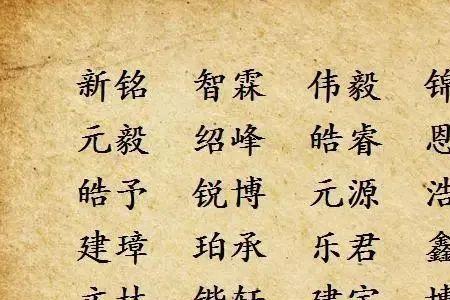 新铭 智霖 伟毅 锦
元毅 绍峰 皓睿 恩
皓予 锐博 元源 浩
建璋 珀承 乐君 鑫
轩